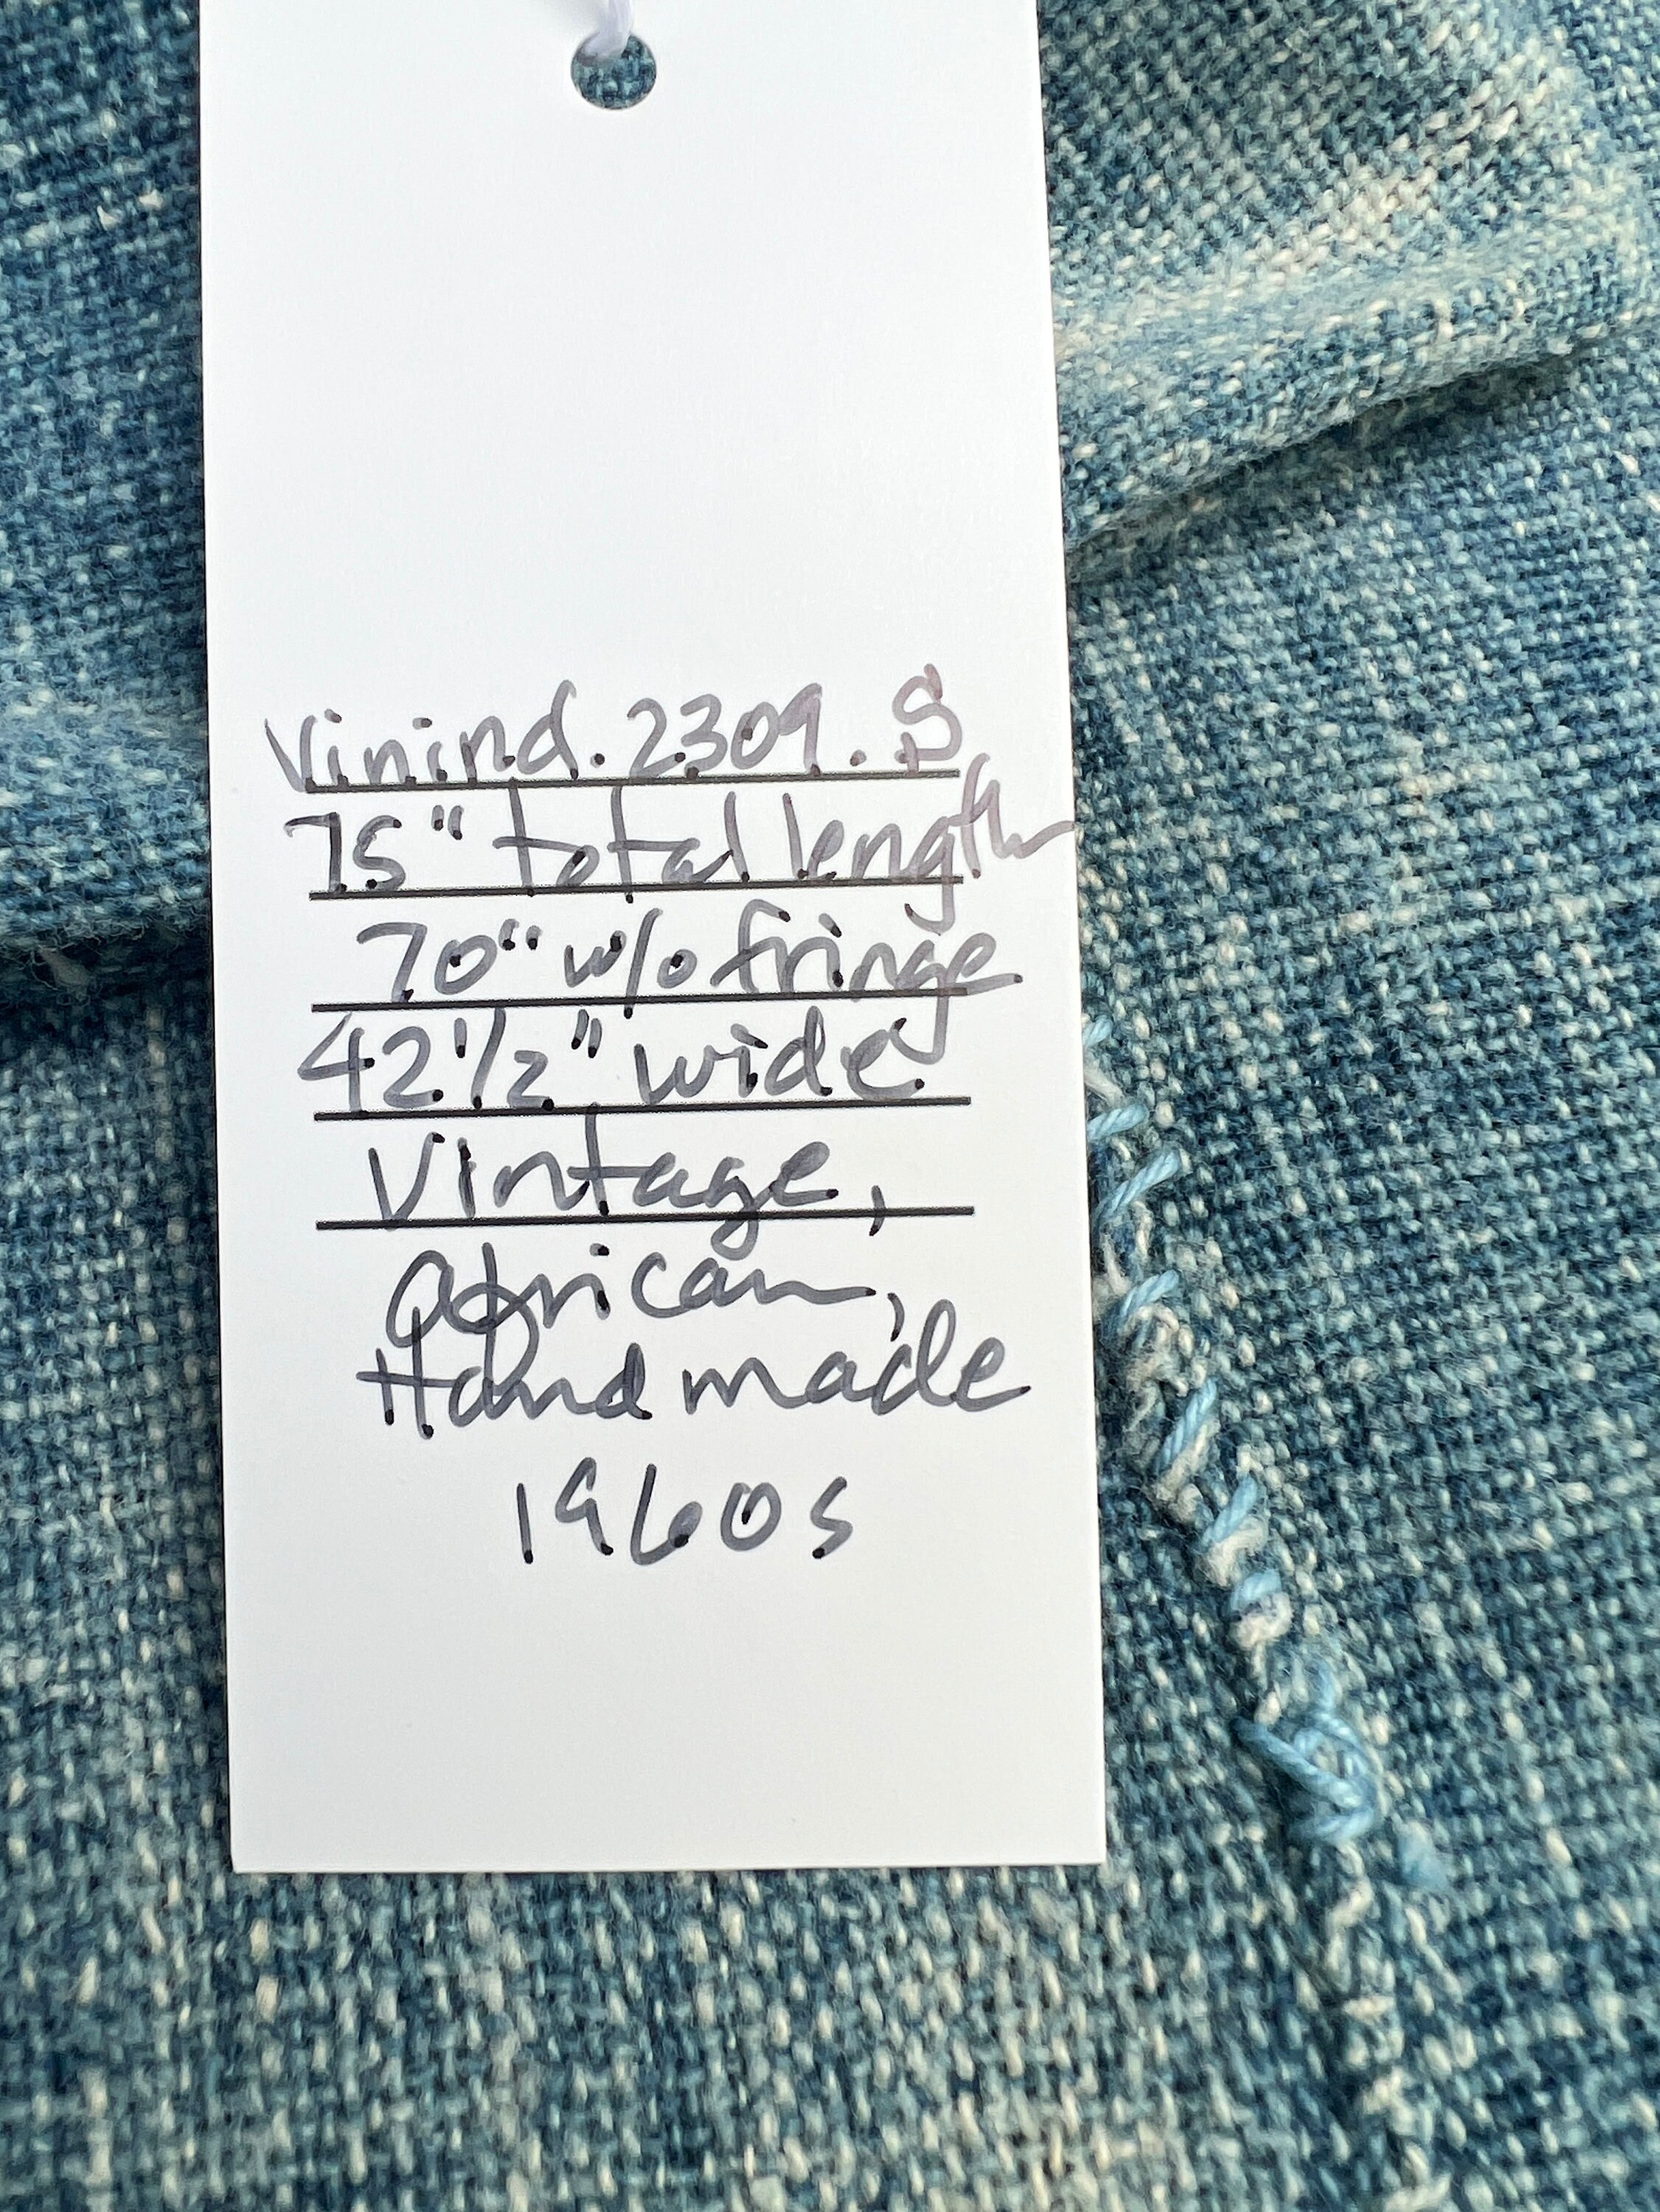 Vinind. 2309. S
75" total length
70" w/o fringe
42 1/2" wide
Vintage,
African,
Handmade
1960s